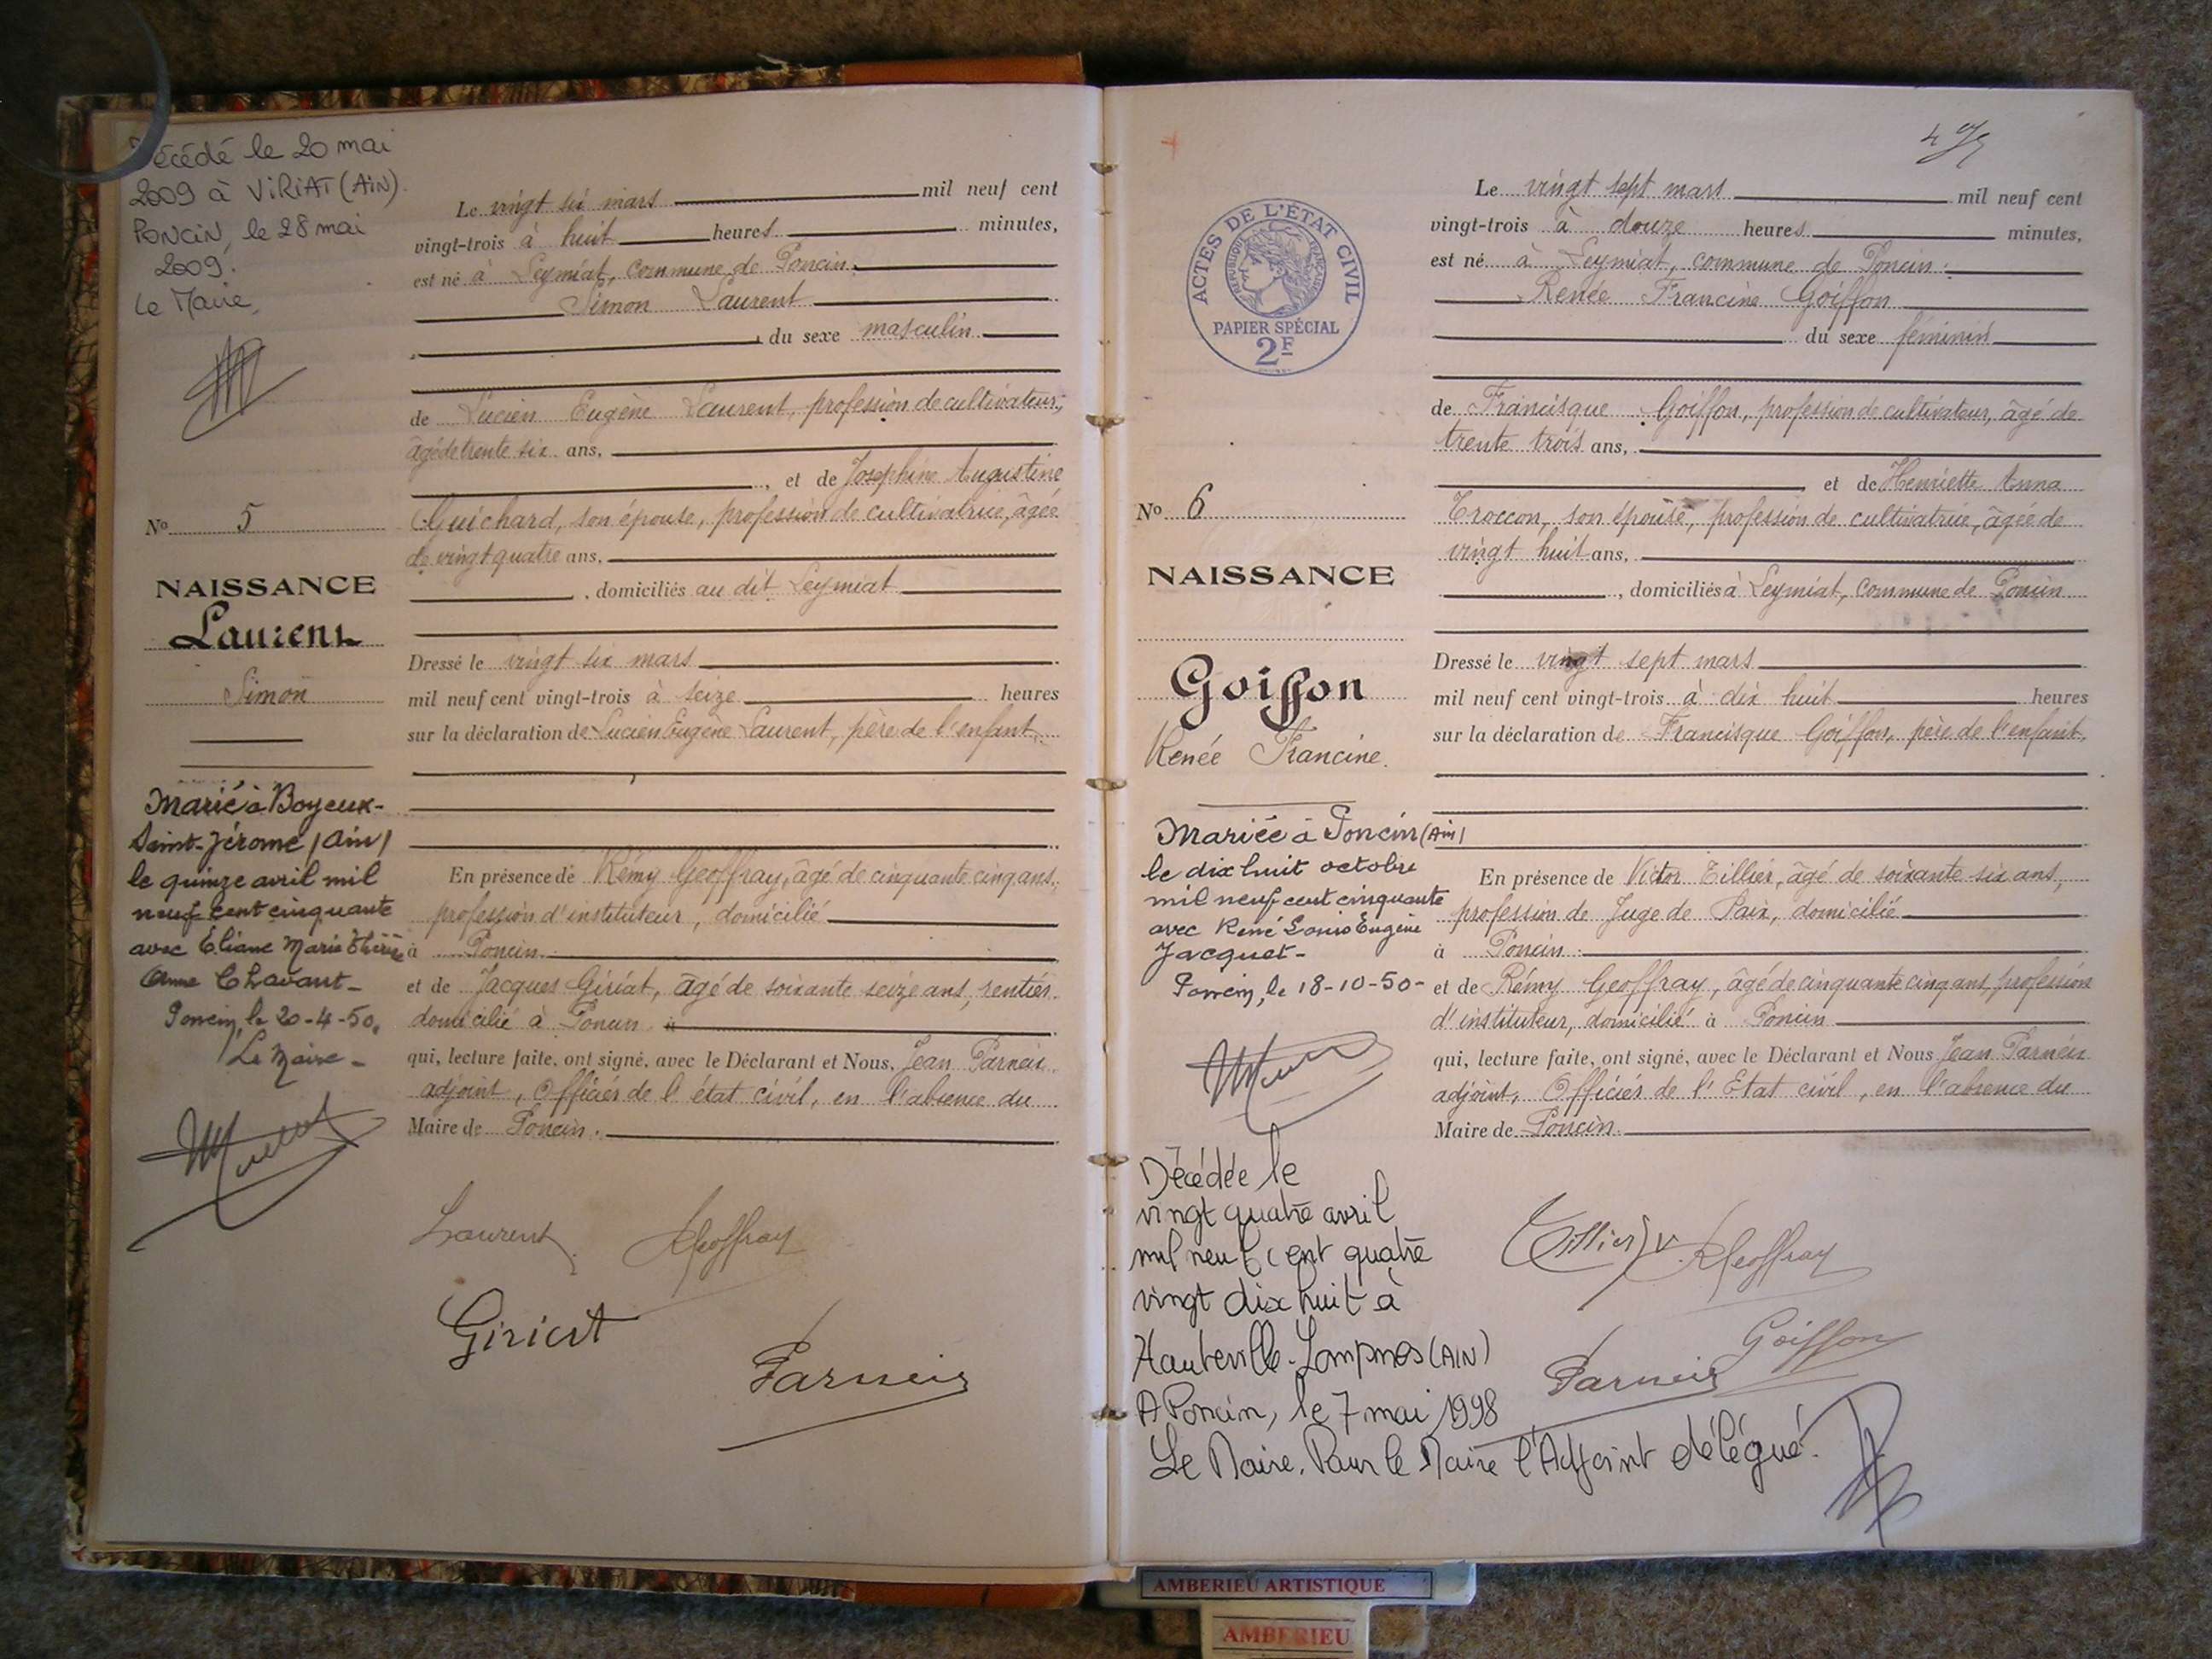 Décédé le 20 mai
2009 à VIRIAT (AIN).
PONCIN, le 28 mai
2009.
Le Maire,
Le vingt six mars mil neuf cent
vingt-trois à huit heures minutes,
est né à Leymiat, commune de Poncin.
Simon Laurent
, du sexe masculin
de Lucien Eugène Laurent, profession de cultivateur,
âgé de trente six ans,
, et de Joséphine Augustine
Guichard, son épouse, profession de cultivatrice, âgée
de vingt quatre ans,
, domiciliés au dit Leymiat
Nº 5
NAISSANCE
Laurent
Simon
Dressé le vingt six mars
mil neuf cent vingt-trois à seize heures
sur la déclaration de Lucien Eugène Laurent, père de l'enfant
Marié à Boyeux-
Saint-Jérome (Ain)
le quinze avril mil
neuf cent cinquante
avec Éliane Marie Thérèse
Anne Chavant-
Poncin, le 20-4-50.
Le Maire-
En présence de Rémy Geoffray, âgé de cinquante cinq ans,
profession d'instituteur, domicilié
à Poncin
et de Jacques Giriat, âgé de soixante seize ans, rentier
domicilié à Poncin
qui, lecture faite, ont signé, avec le Déclarant et Nous, Jean Parneix
adjoint, Officier de l'état civil, en l'absence du
Maire de Poncin.
Laurent
RGeoffray
Giriat
Parneix
ACTES DE L'ÉTAT CIVIL
RÉPUBLIQUE FRANÇAISE
PAPIER SPÉCIAL
2F
Le vingt sept mars mil neuf cent
vingt-trois à douze heures minutes,
est né à Leymiat, commune de Poncin.
Renée Francine Goiffon
du sexe féminin
de Francisque Goiffon, profession de cultivateur, âgé de
trente trois ans,
et de Henriette Anna
Troccon, son épouse, profession de cultivatrice, âgée de
vingt huit ans,
, domiciliés à Leymiat, commune de Poncin
Nº 6
NAISSANCE
Goiffon
Renée Francine.
Dressé le vingt sept mars
mil neuf cent vingt-trois à dix huit heures
sur la déclaration de Francisque Goiffon, père de l'enfant,
Mariée à Poncin (Ain)
le dix huit octobre
mil neuf cent cinquante
avec René Louis Eugène
Jacquet-
Poncin, le 18-10-50-
En présence de Victor Tillier, âgé de soixante six ans,
profession de Juge de Paix, domicilié
à Poncin
et de Rémy Geoffray, âgé de cinquante cinq ans, profession
d'instituteur, domicilié à Poncin
qui, lecture faite, ont signé, avec le Déclarant et Nous Jean Parneix
adjoint, Officier de l'Etat civil, en l'absence du
Maire de Poncin.
Décédée le
vingt quatre avril
mil neuf cent quatre
vingt dix huit à
Hauteville-Lompnes (AIN)
A Poncin, le 7 mai 1998
Le Maire. Pour le Maire l'Adjoint délégué.
Tillier V
RGeoffray
Goiffon
Parneix
AMBERIEU ARTISTIQUE
AMBERIEU